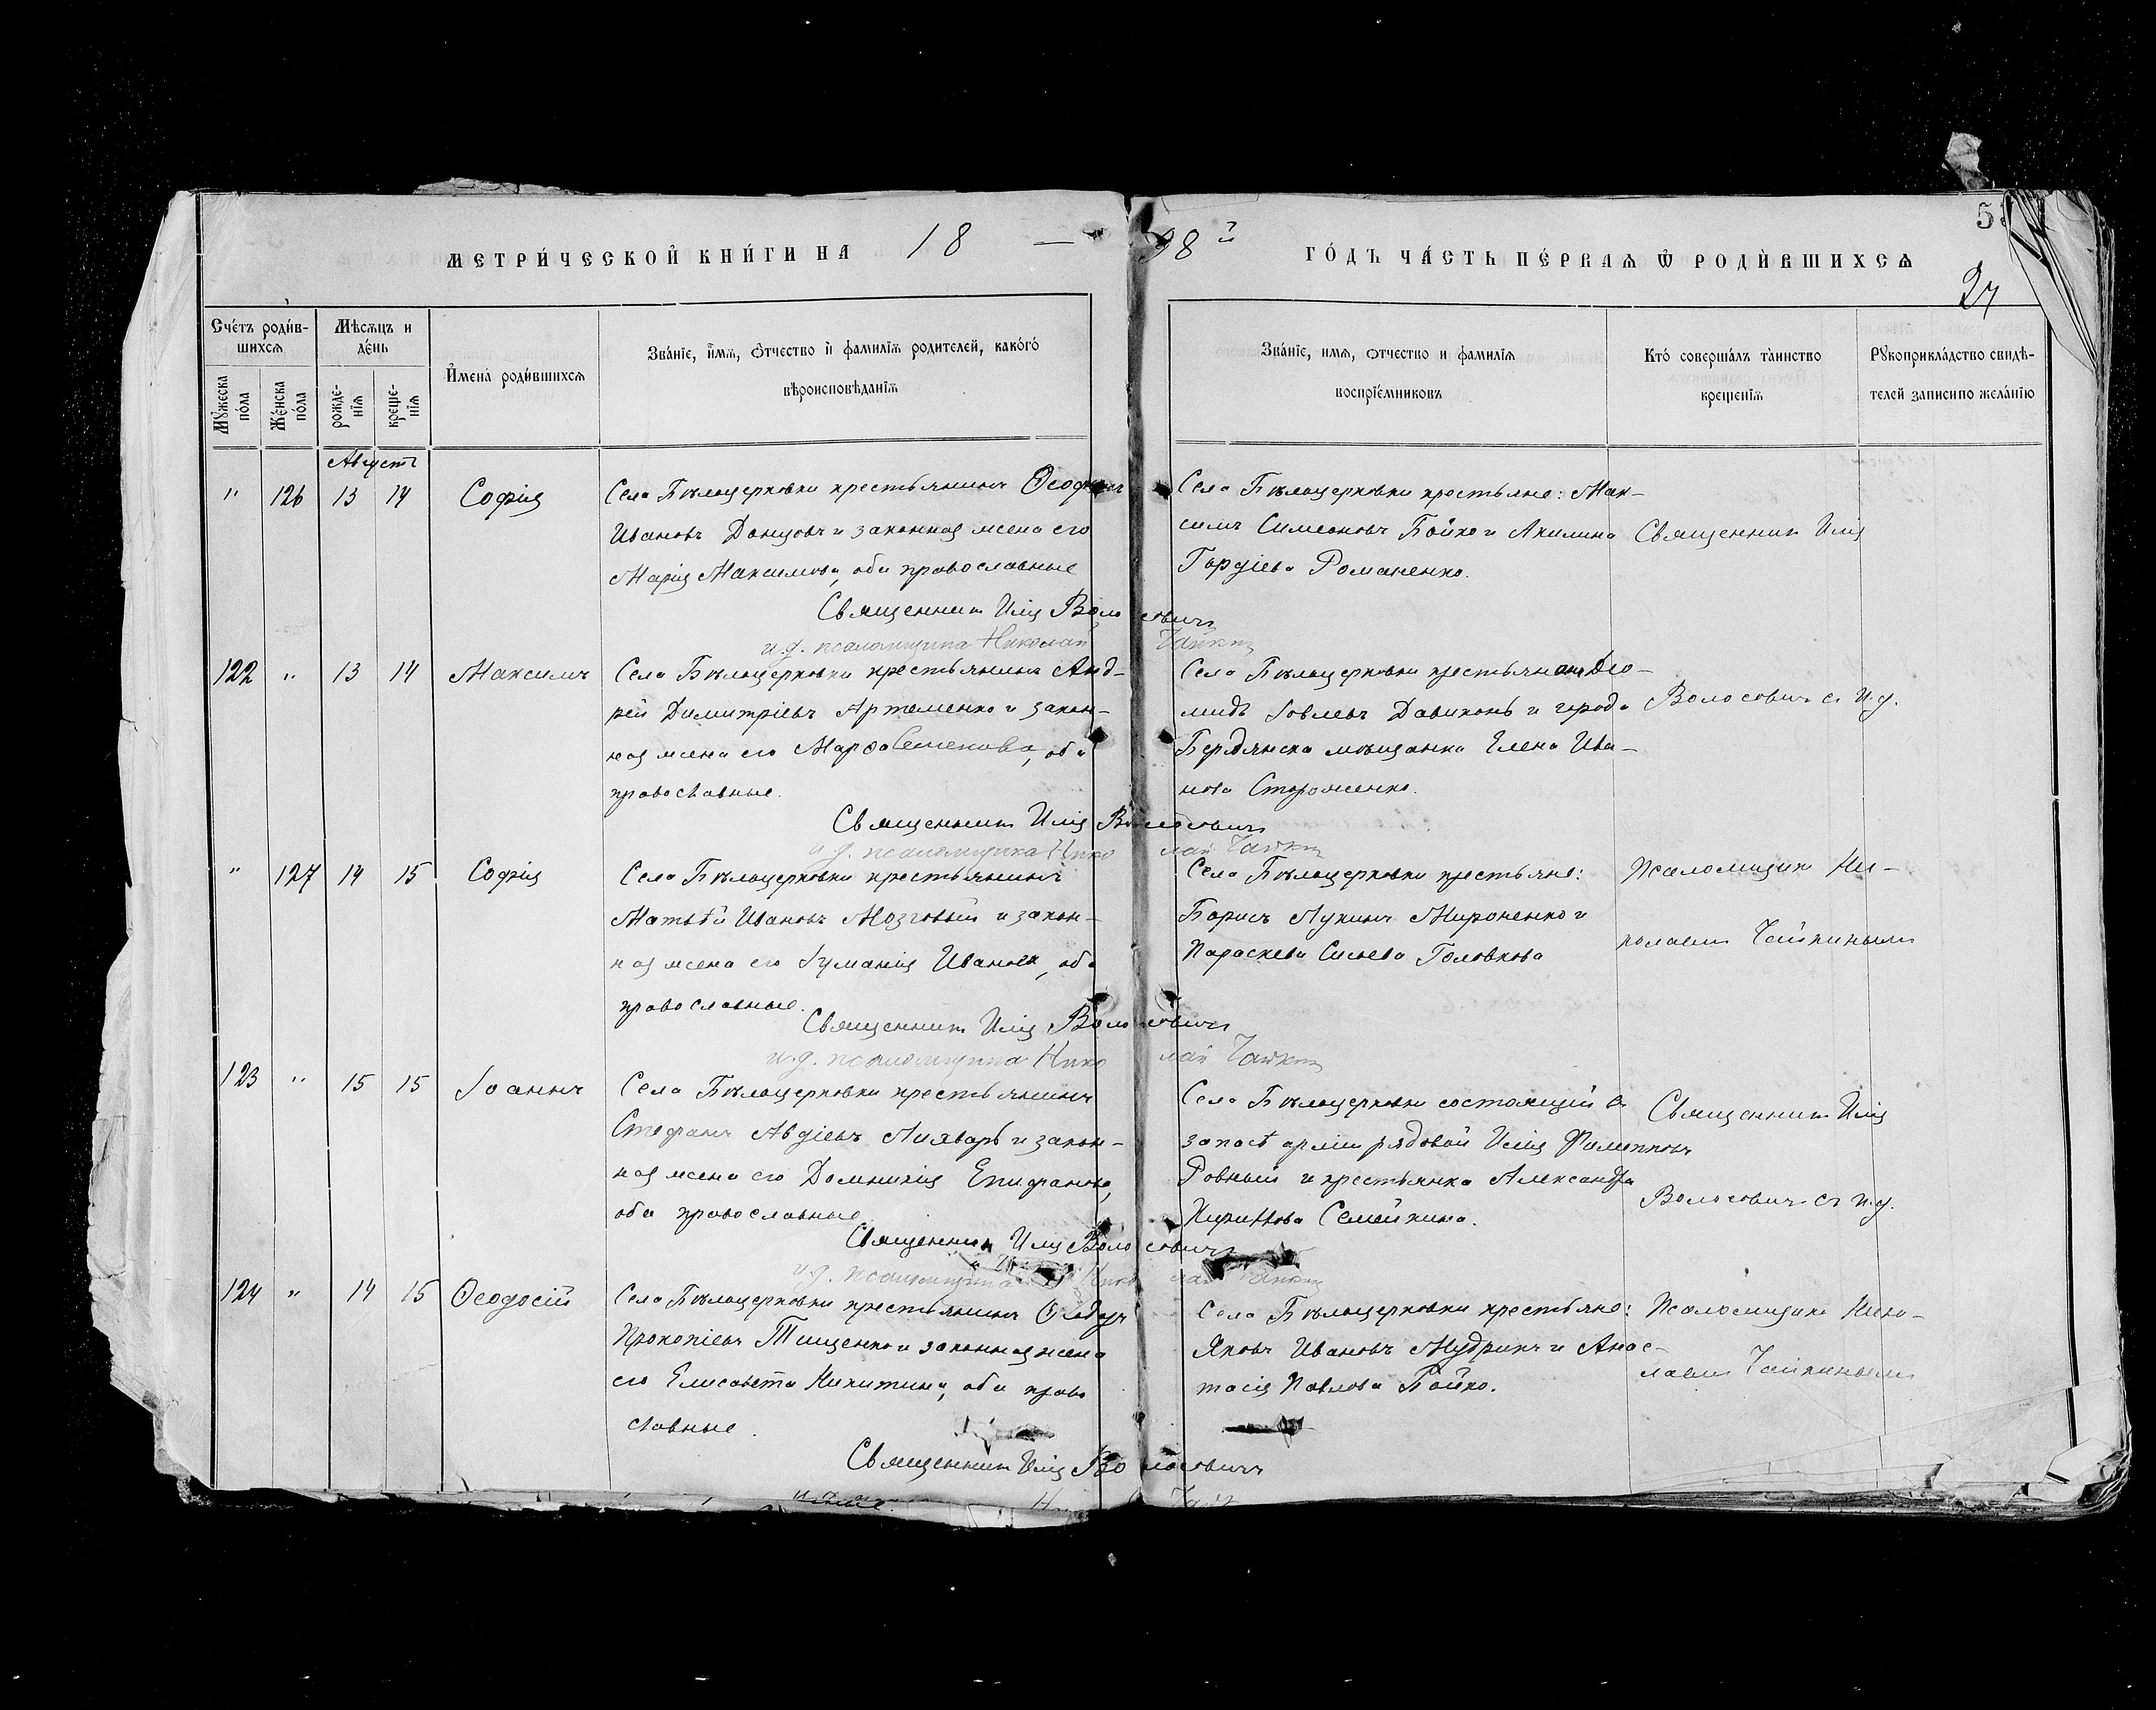 МЕТРИ́ЧЕСКОЙ КНИ́ГИ НА 18 — 98й ГО́ДЪ ЧА́СТЬ ПЕ́РВАѦ Ѿ РОДИ́ВШИХСѦ
27
Сче́тъ роди́в-
шихсѧ
Мѣсѧцъ и
де́нь
Мꙋжеска
по́ла
Же́нска
по́ла
рожде-
нїѧ
креще-
нїѧ
И҆мена́ роди́вшихсѧ
Зва́нїе, и҆́мѧ, ѻ҆́тчество и҆ фамилїѧ родителей, како́гѡ
вѣроисповѣ́данїѧ
Зва́нїе, имѧ, ѻтчество и фамилїѧ
воспрїе́мниковъ
Кто́ соверша́лъ та̀инство
крещенїѧ
Рꙋкоприкла́дство свидѣ́-
телей записи по жела́нїю
Августъ
" 126 13 14 Софія
Села Бѣлоцерковки крестьянинъ Ѳеофилъ
Ивановъ Донцовъ и законная жена его
Марія Максимова, оба православные
Священникъ Илія Волосовичъ
и.д. псаломщика Николай Чайкин
Села Бѣлоцерковки крестьяне: Мак-
симъ Симеоновъ Бойко и Акилина
Гордіева Романенко.
Священник Илія
Волосовичъ съ и.д.
122 " 13 14 Максимъ
Села Бѣлоцерковки крестьянинъ Анд-
рей Димитріевъ Артеменко и закон-
ная жена его Марфа Семенова, оба
православные.
Священникъ Илія Волосовичъ
и.д. псаломщика Николай Чайкин
Села Бѣлоцерковки крестьянинъ Дио-
мидъ Іовлевъ и города
Бердянска мѣщанка Елена Ива-
нова Стороженко.
" 127 14 15 Софія
Села Бѣлоцерковки крестьянинъ
Матвѣй Ивановъ Мозговый и закон-
ная жена его Іуліанія Иванова, оба
православные.
Священникъ Илія Волосовичъ
и.д. псаломщика Николай Чайкин
Села Бѣлоцерковки крестьяне:
Борисъ Лукинъ Мироненко и
Параскева Сысоева Головкова
Псаломщик Ни-
колаем Чайкиным
123 " 15 15 Іоаннъ
Села Бѣлоцерковки крестьянинъ
Стефанъ Авдіевъ и закон-
ная жена его Домникія Епифанова,
оба православные
Священникъ Илія Волосовичъ
и.д. псаломщика Николай Чайкин
Села Бѣлоцерковки состоящій в
запасѣ арміи рядовой Илія Филипповъ
Ровный и крестьянка Александра
Кириллова Семейкина.
Священник Илія
Волосович съ и.д.
124 " 14 15 Ѳеодосій
Села Бѣлоцерковки крестьянинъ Ѳеодоръ
Прокопіевъ Тищенко и законная жена
его Елисавета Никитина, оба право
славные.
Священникъ Илія Волосовичъ
Села Бѣлоцерковки крестьяне:
Яковъ Ивановъ Мудрикъ и Анас-
тасія Павлова Бойко.
Псаломщик Нико-
лаем Чайкиным